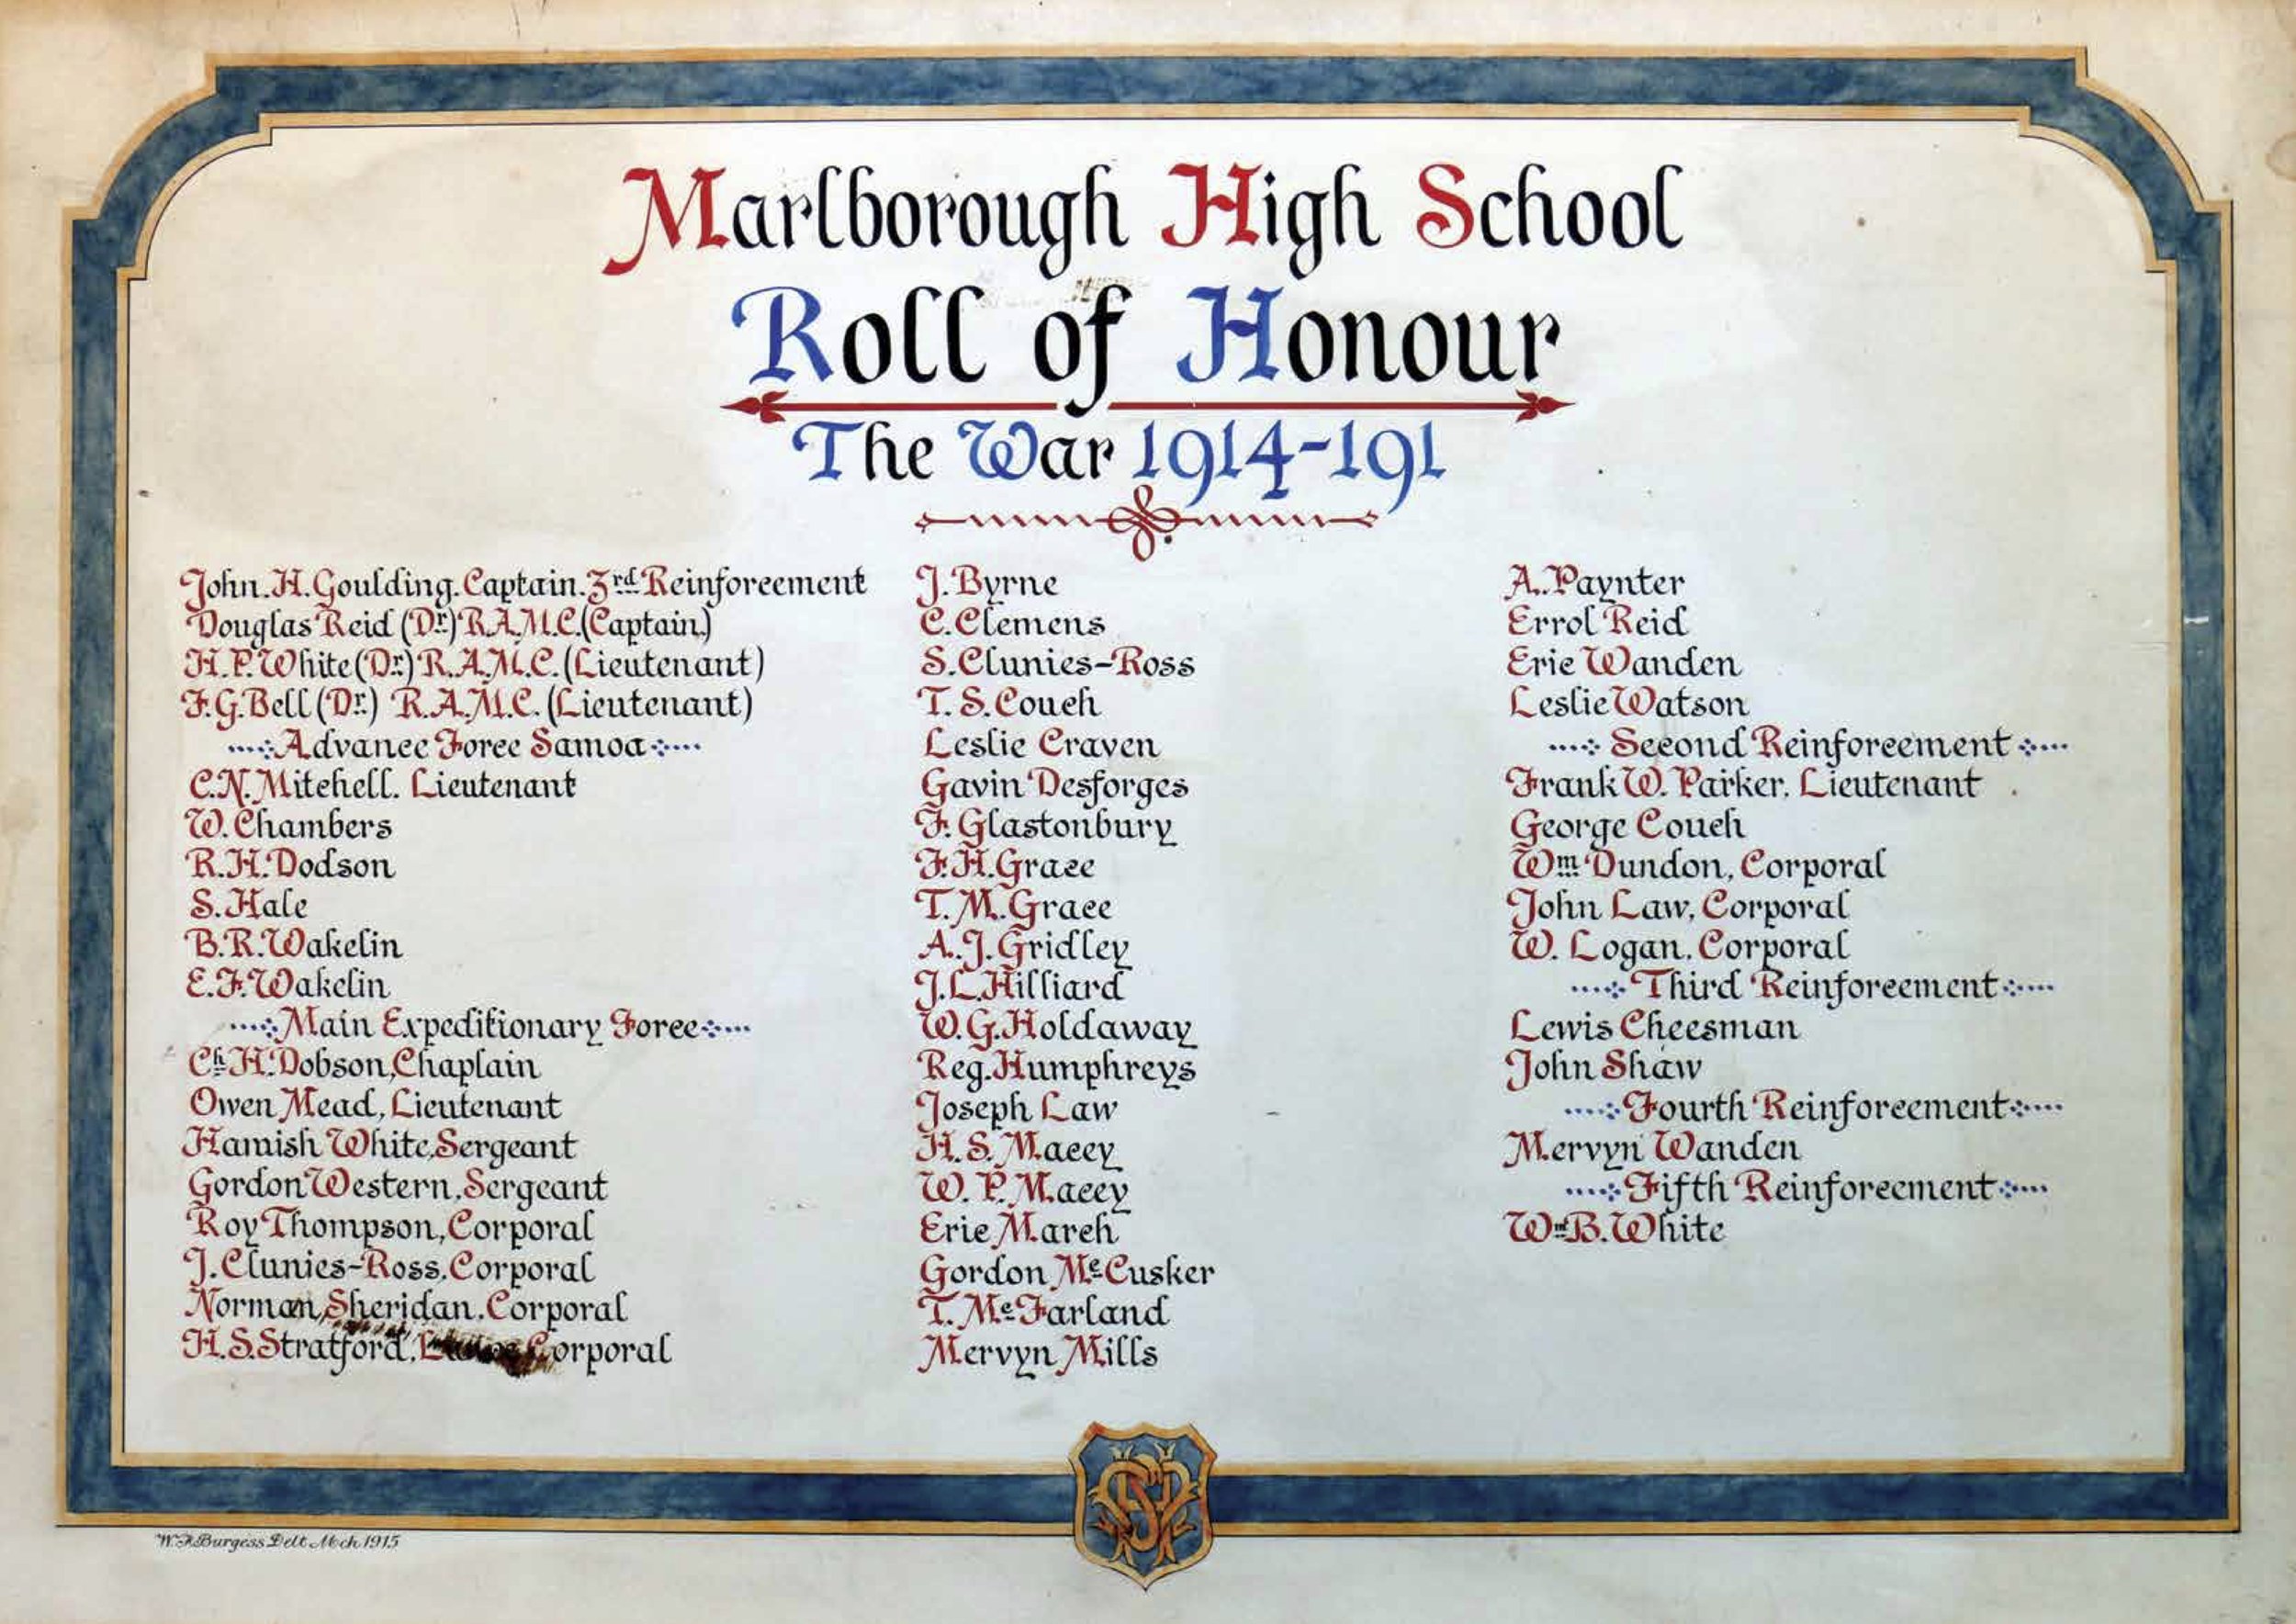 Marlborough High School
Roll of Honour
The War 1914-191
John.H.Goulding.Captain.3rd Reinforcement
Douglas Reid (Dr.) R.A.M.C.(Captain)
H.P.White (Dr.) R.A.M.C.(Lieutenant)
F.G.Bell (Dr.) R.A.M.C.(Lieutenant)
Advance Force Samoa
C.N.Mitchell. Lieutenant
W.Chambers
R.H.Dodson
S.Hale
B.R.Wakelin
E.F.Wakelin
Main Expeditionary Force
Ch.H.Dobson,Chaplain
Owen Mead, Lieutenant
Hamish White,Sergeant
Gordon Western,Sergeant
Roy Thompson,Corporal
J.Clunies-Ross,Corporal
Norman Sheridan,Corporal
H.S.Stratford, Corporal
J.Byrne
C.Clemens
S.Clunies-Ross
T.S.Couch
Leslie Craven
Gavin Desforges
F.Glastonbury
F.H.Grace
T.M.Grace
A.J.Gridley
J.L.Hilliard
W.G.Holdaway
Reg.Humphreys
Joseph Law
H.S.Macey
W.P.Macey
Eric March
Gordon McCusker
T.McFarland
Mervyn Mills
A.Paynter
Errol Reid
Eric Wanden
Leslie Watson
Second Reinforcement
Frank W. Parker, Lieutenant
George Couch
Wm Dundon, Corporal
John Law, Corporal
W. Logan, Corporal
Third Reinforcement
Lewis Cheesman
John Shaw
Fourth Reinforcement
Mervyn Wanden
Fifth Reinforcement
Wm B.White
W.F.Burgess Delt Mch 1915